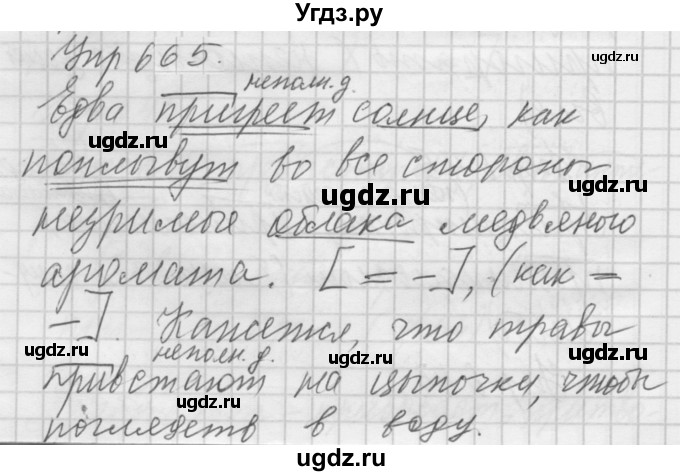 Угдз.ру
Упр 665.
неполн.д.
Едва пригреет солнце, как
поплывут во все стороны
незримые облака медвяного
аромата. [= -], (как =
-]. Кажется, что травы
неполн.д.
привстают на цыпочки, чтобы
поглядеть в воду.
ugdz.ru
ugdz.ru
ugdz.ru
ugdz.ru
ugdz.ru
ugdz.ru
ugdz.ru
ugdz.ru
ugdz.ru
ugdz.ru
Угдз.ру